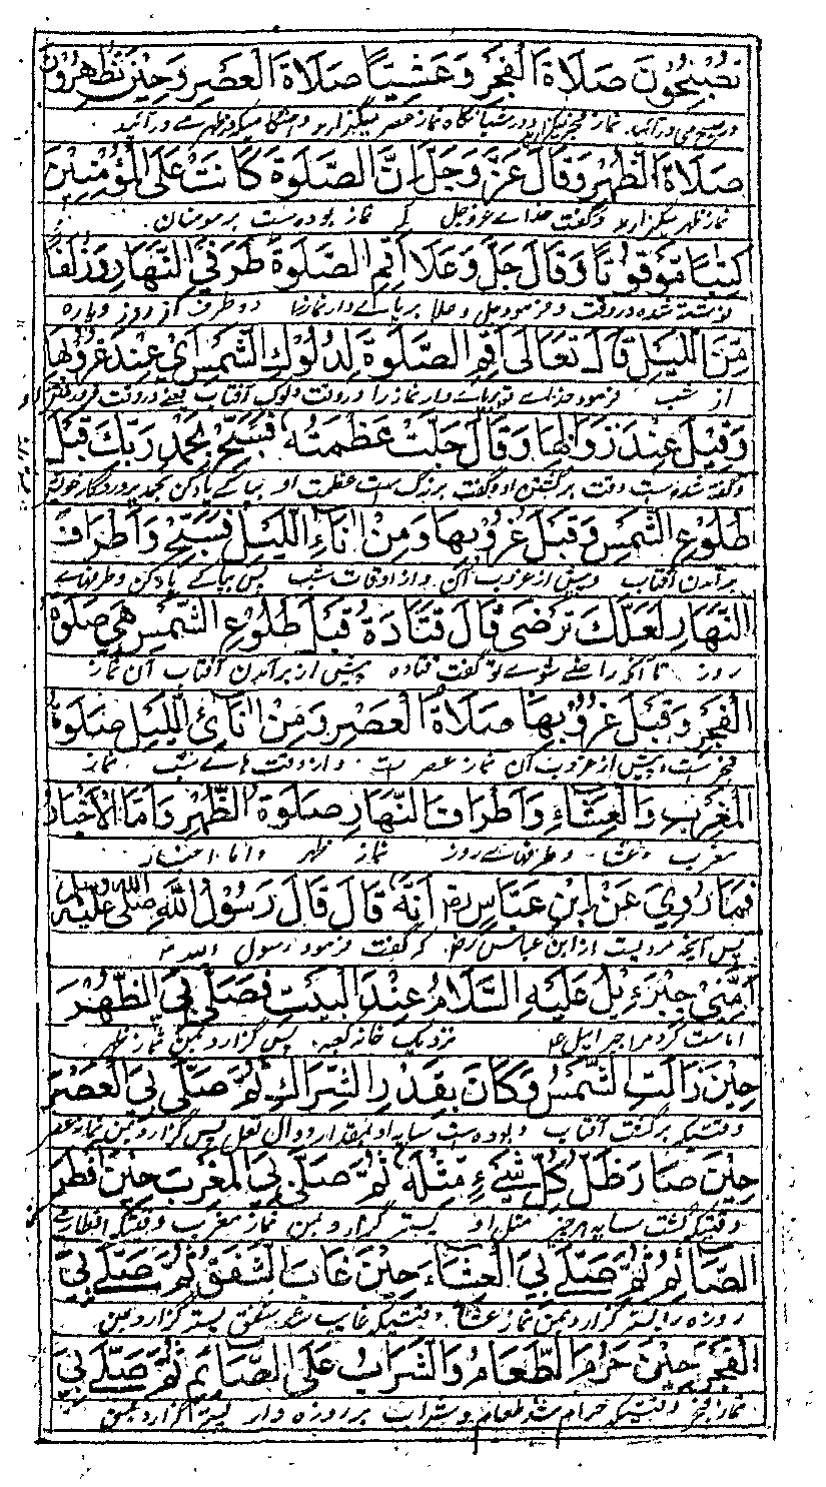 تُصْبِحُونَ صَلَاةَ الْفَجْرِ وَعَشِيًّا صَلَاةَ الْعَصْرِ وَحِيْنَ تُظْهِرُونَ
در صبح می درآئید نماز فجر و در شبانگاه نماز عصر میگذارید و هنگامیکه در ظهر می درآئید
صَلَاةَ الظُّهْرِ وَقَالَ عَزَّ وَجَلَّ اِنَّ الصَّلٰوةَ كَانَتْ عَلَى الْمُؤْمِنِيْنَ
نماز ظهر میگذارید و گفت خداے عزوجل که نماز بوده است بر مومنان
كِتٰبًا مَّوْقُوْتًا وَقَالَ جَلَّ وَعَلَا اَقِمِ الصَّلٰوةَ طَرَفَيِ النَّهَارِ وَزُلَفًا
نوشته شده در وقت و فرمود جل و علا برپاے دار نماز را دو طرف از روز و پاره
مِّنَ الَّيْلِ قَالَ تَعَالٰى اَقِمِ الصَّلٰوةَ لِدُلُوْكِ الشَّمْسِ اَيْ عِنْدَ غُرُوْبِهَا
از شب فرمود خداے تعالی برپاے دار نماز را در وقت دلوک آفتاب یعنے در وقت فرو رفتن
وَقِيْلَ عِنْدَ زَوَالِهَا وَقَالَ جَلَّتْ عَظَمَتُهٗ فَسَبِّحْ بِحَمْدِ رَبِّكَ قَبْلَ
و گفته شده است وقت برگشتن او و گفت بزرگ است عظمت او بپاکے یاد کن بحمد پروردگار خود
طُلُوْعِ الشَّمْسِ وَقَبْلَ غُرُوْبِهَا وَمِنْ اٰنَآءِ الَّيْلِ فَسَبِّحْ وَاَطْرَافَ
برآمدن آفتاب و پیش از غروب آن و از اوقات شب پس بپاکے یاد کن و طرفهاے
النَّهَارِ لَعَلَّكَ تَرْضٰى قَالَ قَتَادَةُ قَبْلَ طُلُوْعِ الشَّمْسِ هِيَ صَلٰوةُ
روز تا آنکه راضے شوے تو گفت قتاده پیش از برآمدن آفتاب آن نماز
الْفَجْرِ وَقَبْلَ غُرُوْبِهَا صَلَاةُ الْعَصْرِ وَمِنْ اٰنَآئِ الَّيْلِ صَلٰوةُ
فجر است و پیش از غروب آن نماز عصر است و از وقت هاے شب نماز
الْمَغْرِبِ وَالْعِشَاءِ وَاَطْرَافَ النَّهَارِ صَلٰوةُ الظُّهْرِ وَاَمَّا الْاَخْبَارُ
مغرب و عشا و طرفهاے روز نماز ظهر و اما اخبار
فَمَا رُوِيَ عَنْ ابْنِ عَبَّاسٍ رض اَنَّهٗ قَالَ قَالَ رَسُوْلُ اللّٰهِ صَلَّى اللّٰهُ عَلَيْهِ وَسَلَّمَ
پس آنچه مرویست از ابن عباس رض که گفت فرمود رسول الله
اَمَّنِيْ جِبْرَءِيْلُ عَلَيْهِ السَّلَامُ عِنْدَ الْبَيْتِ فَصَلّٰى بِيَ الظُّهْرَ
امامت کرد مرا جبرائیل ع نزدیک خانه کعبه پس گزارد بمن نماز ظهر
حِيْنَ زَالَتِ الشَّمْسُ وَكَانَ بِقَدْرِ الشِّرَاكِ ثُمَّ صَلّٰى بِيَ الْعَصْرَ
وقتیکه برگشت آفتاب و بوده است سایه او بمقدار دوال نعل پس گزارد بمن نماز عصر
حِيْنَ صَارَ ظِلُّ كُلِّ شَيْءٍ مِّثْلَهٗ ثُمَّ صَلّٰى بِيَ الْمَغْرِبَ حِيْنَ اَفْطَرَ
وقتیکه گشت سایه هر چیز مثل او پستر گزارد بمن نماز مغرب وقتیکه افطار
الصَّائِمُ ثُمَّ صَلّٰى بِيَ الْعِشَاءَ حِيْنَ غَابَ الشَّفَقُ ثُمَّ صَلّٰى بِيَ
روزه را پستر گزارد بمن نماز عشا وقتیکه غایب شد شفق پستر گزارد بمن
الْفَجْرَ حِيْنَ حَرُمَ الطَّعَامُ وَالشَّرَابُ عَلَى الصَّائِمِ ثُمَّ صَلّٰى بِيَ
نماز فجر وقتیکه حرام شد طعام و شراب بر روزه دار پستر گزارد بمن